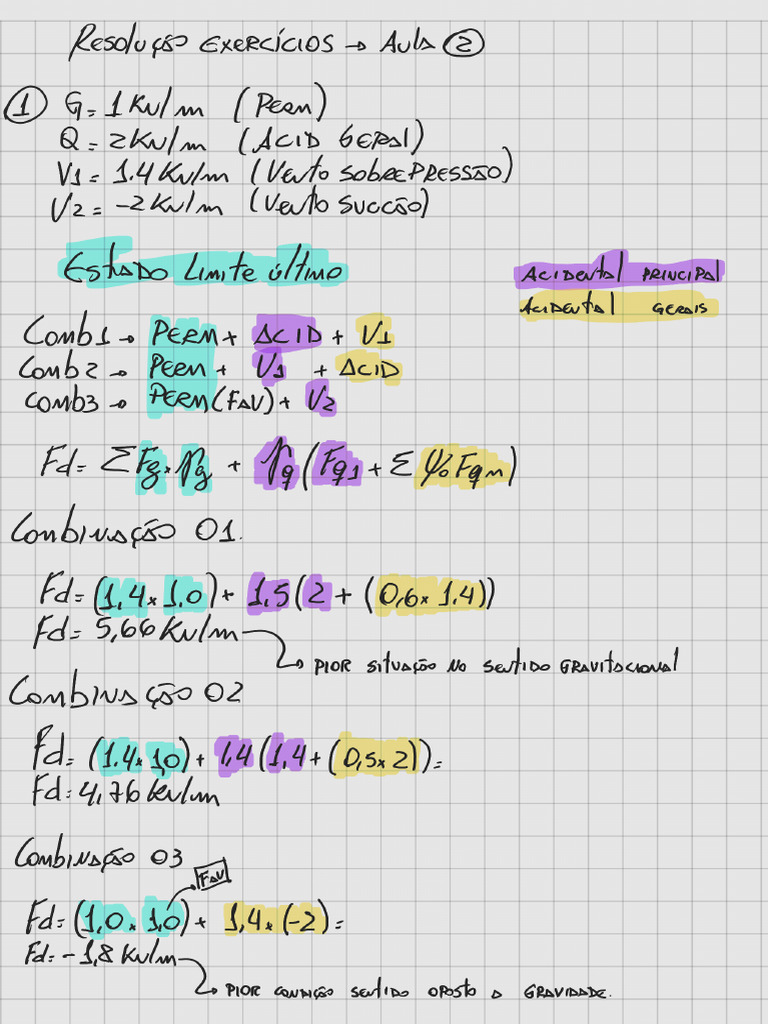 Resolução Exercícios → Aula ②
① G = 1 KN/m (Perm)
Q = 2KN/m (Acid Geral)
V1 = 1.4 KN/m (Vento Sobrepressão)
V2 = -2KN/m (Vento Sucção)
Estado Limite Último
Acidental Principal
Acidental Gerais
Comb1 → Perm + Acid + V1
Comb2 → Perm + V1 + Acid
Comb3 → Perm(Fav) + V2
Fd = ΣFg × γg + γq (Fq1 + Σ ψ0 Fqn)
Combinação 01.
Fd = (1,4 × 1,0) + 1,5 (2 + (0,6 × 1,4))
Fd = 5,66 KN/m
Pior situação no sentido gravitacional
Combinação 02
Fd = (1.4 × 1,0) + 1,4 (1,4 + (0,5 × 2)) =
Fd = 4,76 KN/m
Combinação 03
Fav
Fd = (1,0 × 1,0) + 1,4 × (-2) =
Fd = -1,8 KN/m
Pior condição sentido oposto a gravidade.